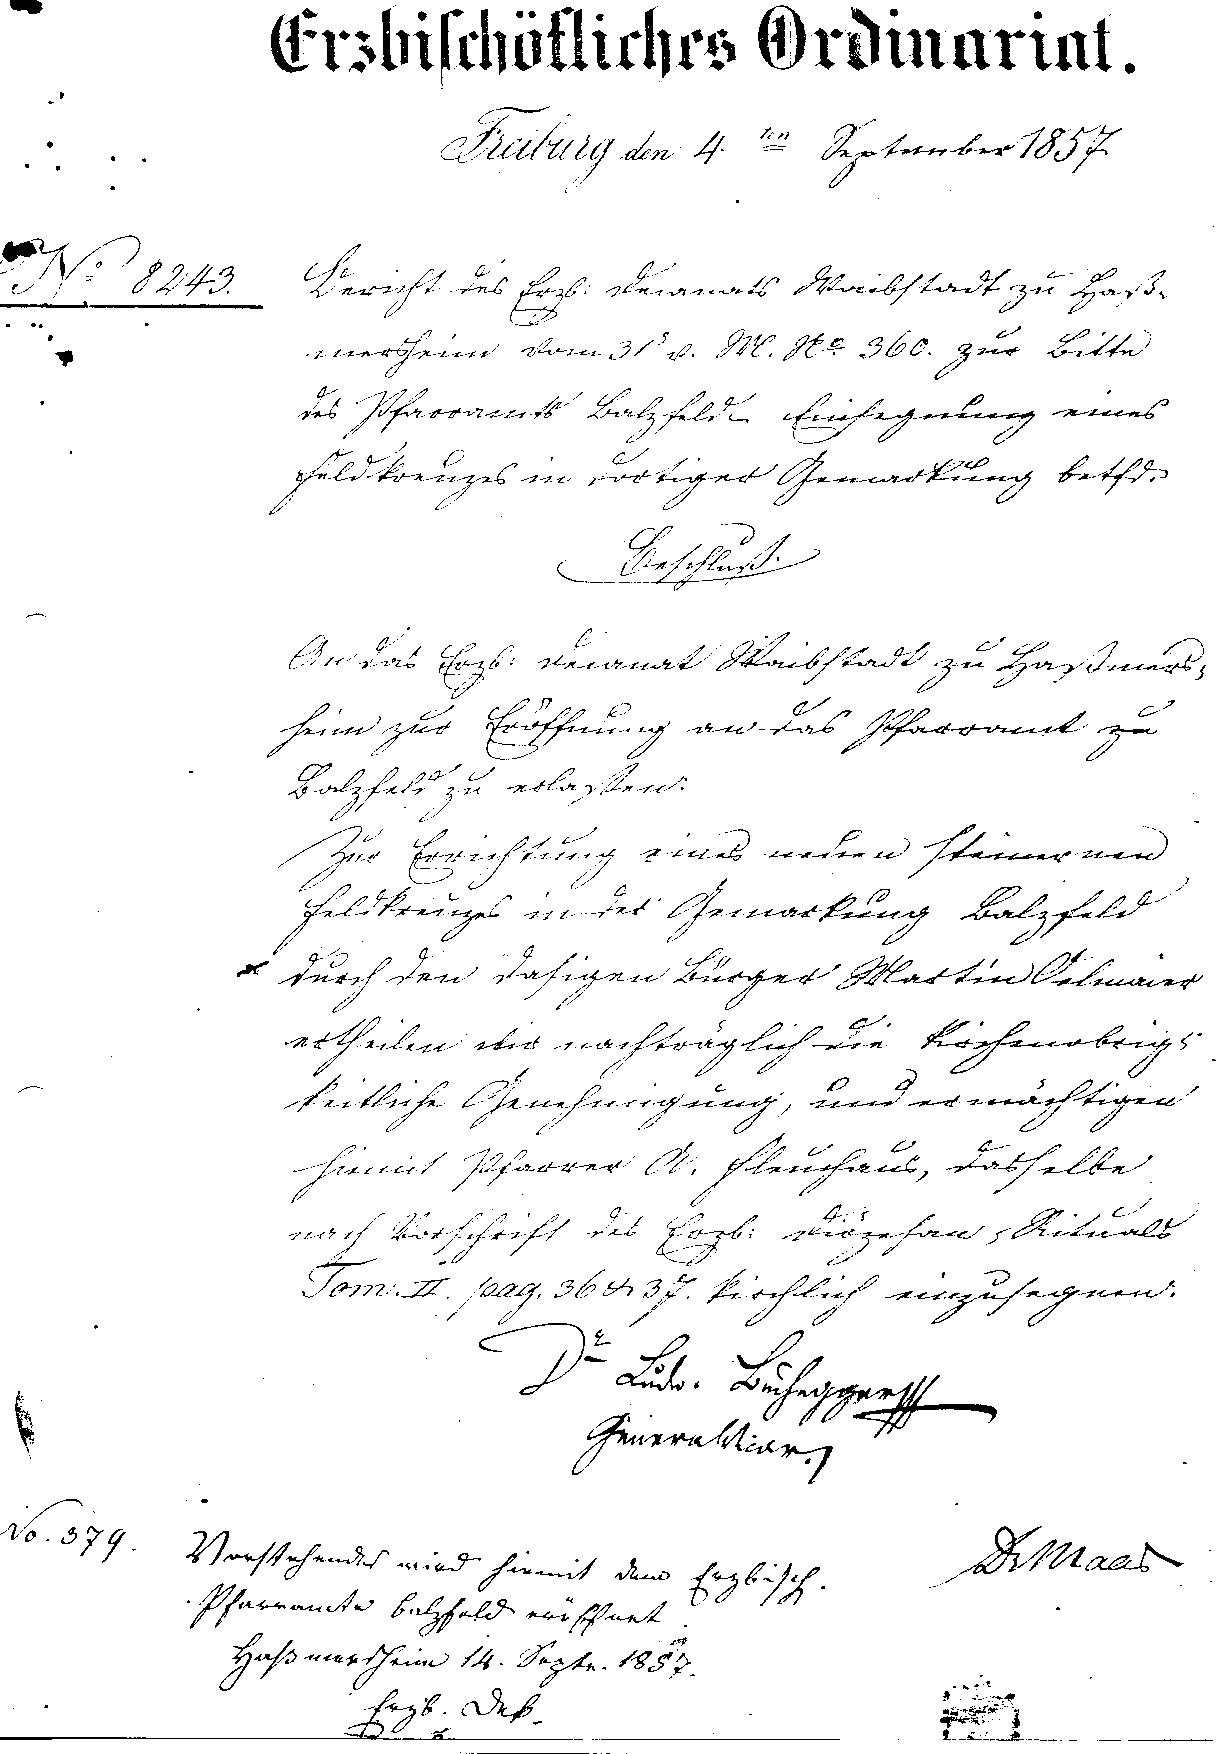 Erzbischöfliches Ordinariat.
Freiburg den 4. ten September 1857
No 8243.
Bericht des Erzb: Decanats Waibstadt zu Haß-
mersheim vom 31s v. M. No 360. zur Bitte
des Pfarramts Balzfeld Einsegnung eines
Feldkreuzes in dortiger Gemarkung betfd.
Beschluß.
An das Erzb: Decanat Waibstadt zu Haßmers-
heim zur Eröffnung an das Pfarramt zu
Balzfeld zu erlassen:
Zur Errichtung eines neuen steinernen
Feldkreuzes in der Gemarkung Balzfeld
durch den dasigen Bürger Martin Oelmaier
ertheilen wir nachträglich die kirchenobrig-
keitliche Genehmigung, und ermächtigen
hiemit Pfarrer A. Fleuchaus, dasselbe
nach Vorschrift des Erzb: Diözesan-Rituals
Tom. II. pag. 36 & 37. kirchlich einzusegnen.
Dr Ludw. Buchegger
Generalvicar.
No. 379.
Vorstehendes wird hiemit dem Erzbisch.
Pfarramte Balzfeld eröffnet
Haßmersheim 14. Septr. 1857.
Erzb. Dek.
Dr Maas